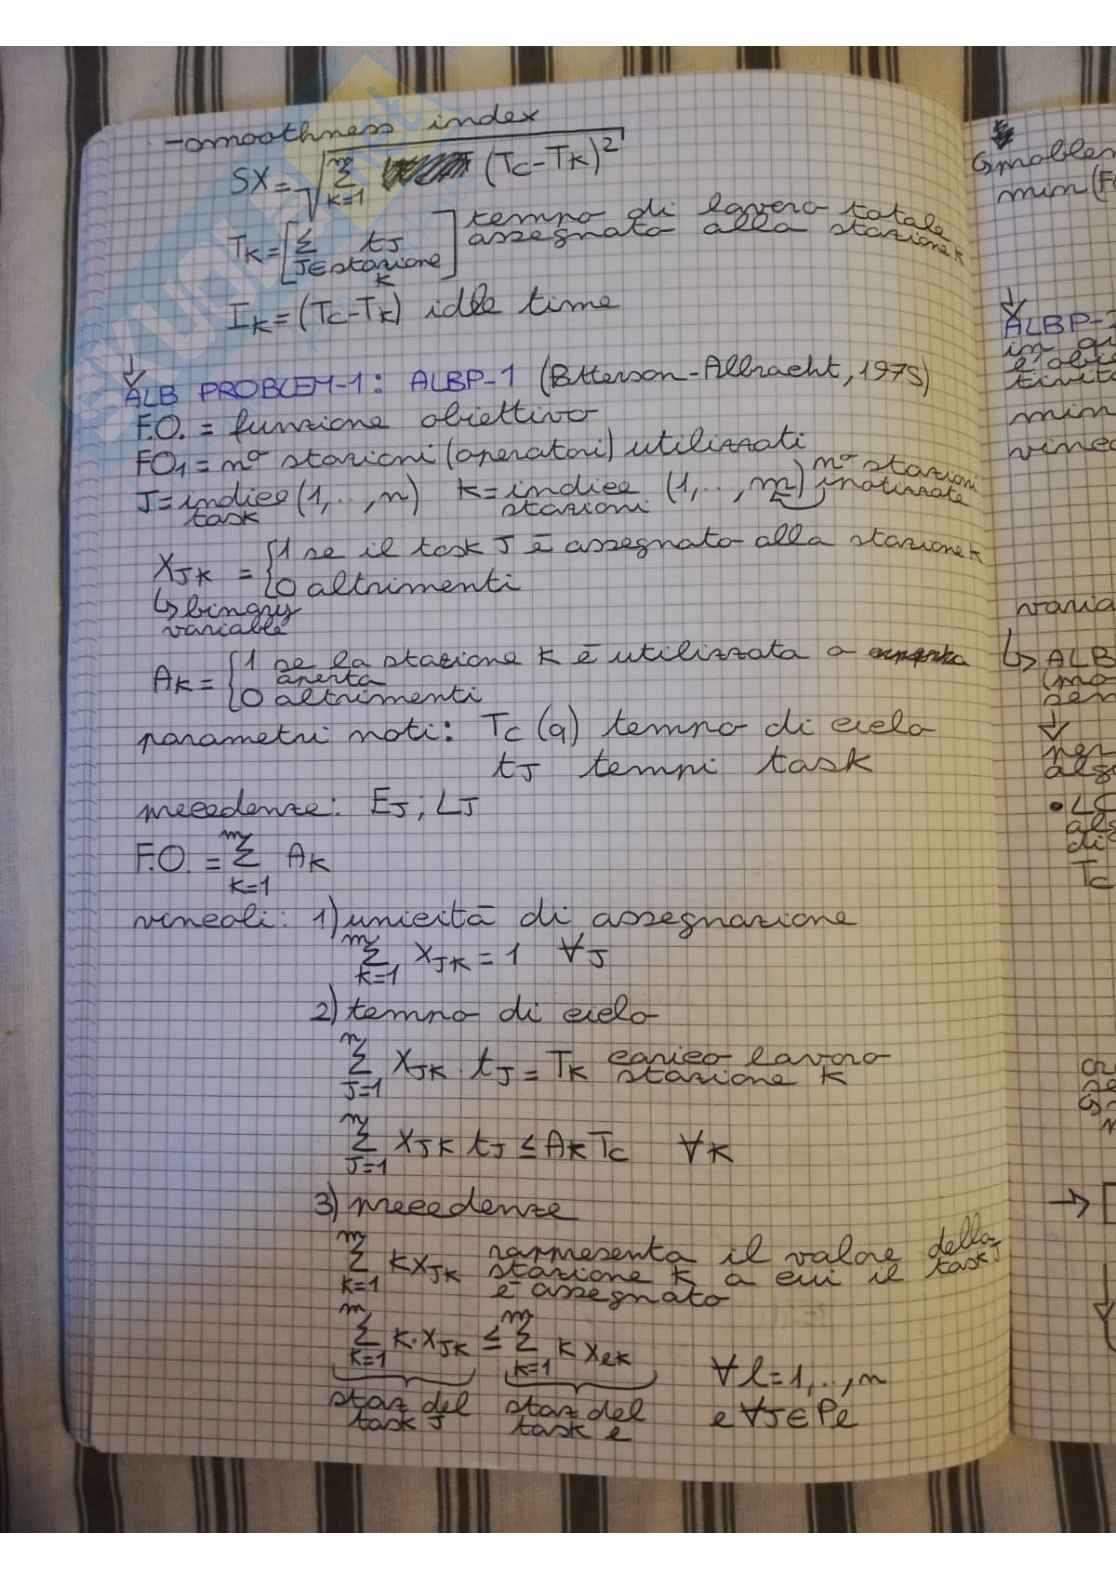 -smoothness index
SX = √ m Σ k=1 (Tc-Tk)²
Tk = [Σ tJ J∈stazione k] tempo di lavoro totale assegnato alla stazione k
Ik = (Tc-Tk) idle time
↓
ALB PROBLEM-1: ALBP-1 (Btterson-Albracht, 1975)
F.O. = funzione obiettivo
FO1 = n° stazioni (operatori) utilizzati
J = indice task (1,..,n) k = indice stazioni (1,..,m) n° stazioni
XJK = {1 se il task J è assegnato alla stazione k
0 altrimenti
↳ binary variable
AK = {1 se la stazione K è utilizzata o aperta
0 altrimenti
parametri noti: Tc (a) tempo di ciclo
tJ tempi task
precedenze: EJ; LJ
F.O. = m Σ k=1 AK
vincoli: 1) unicità di assegnazione
m Σ k=1 XJK = 1 ∀J
2) tempo di ciclo
n Σ J=1 XJK · tJ = TK carico lavoro stazione K
n Σ J=1 XJK tJ ≤ AK Tc ∀K
3) precedenze
m Σ k=1 KXJK rappresenta il valore della stazione K a cui il task J è assegnato
m Σ k=1 K·XJK ≤ m Σ k=1 K Xek ∀l=1,..,n
staz del task J staz del task e e ∀J∈Pe
min (F
ALBP-
min
ALB
Tc